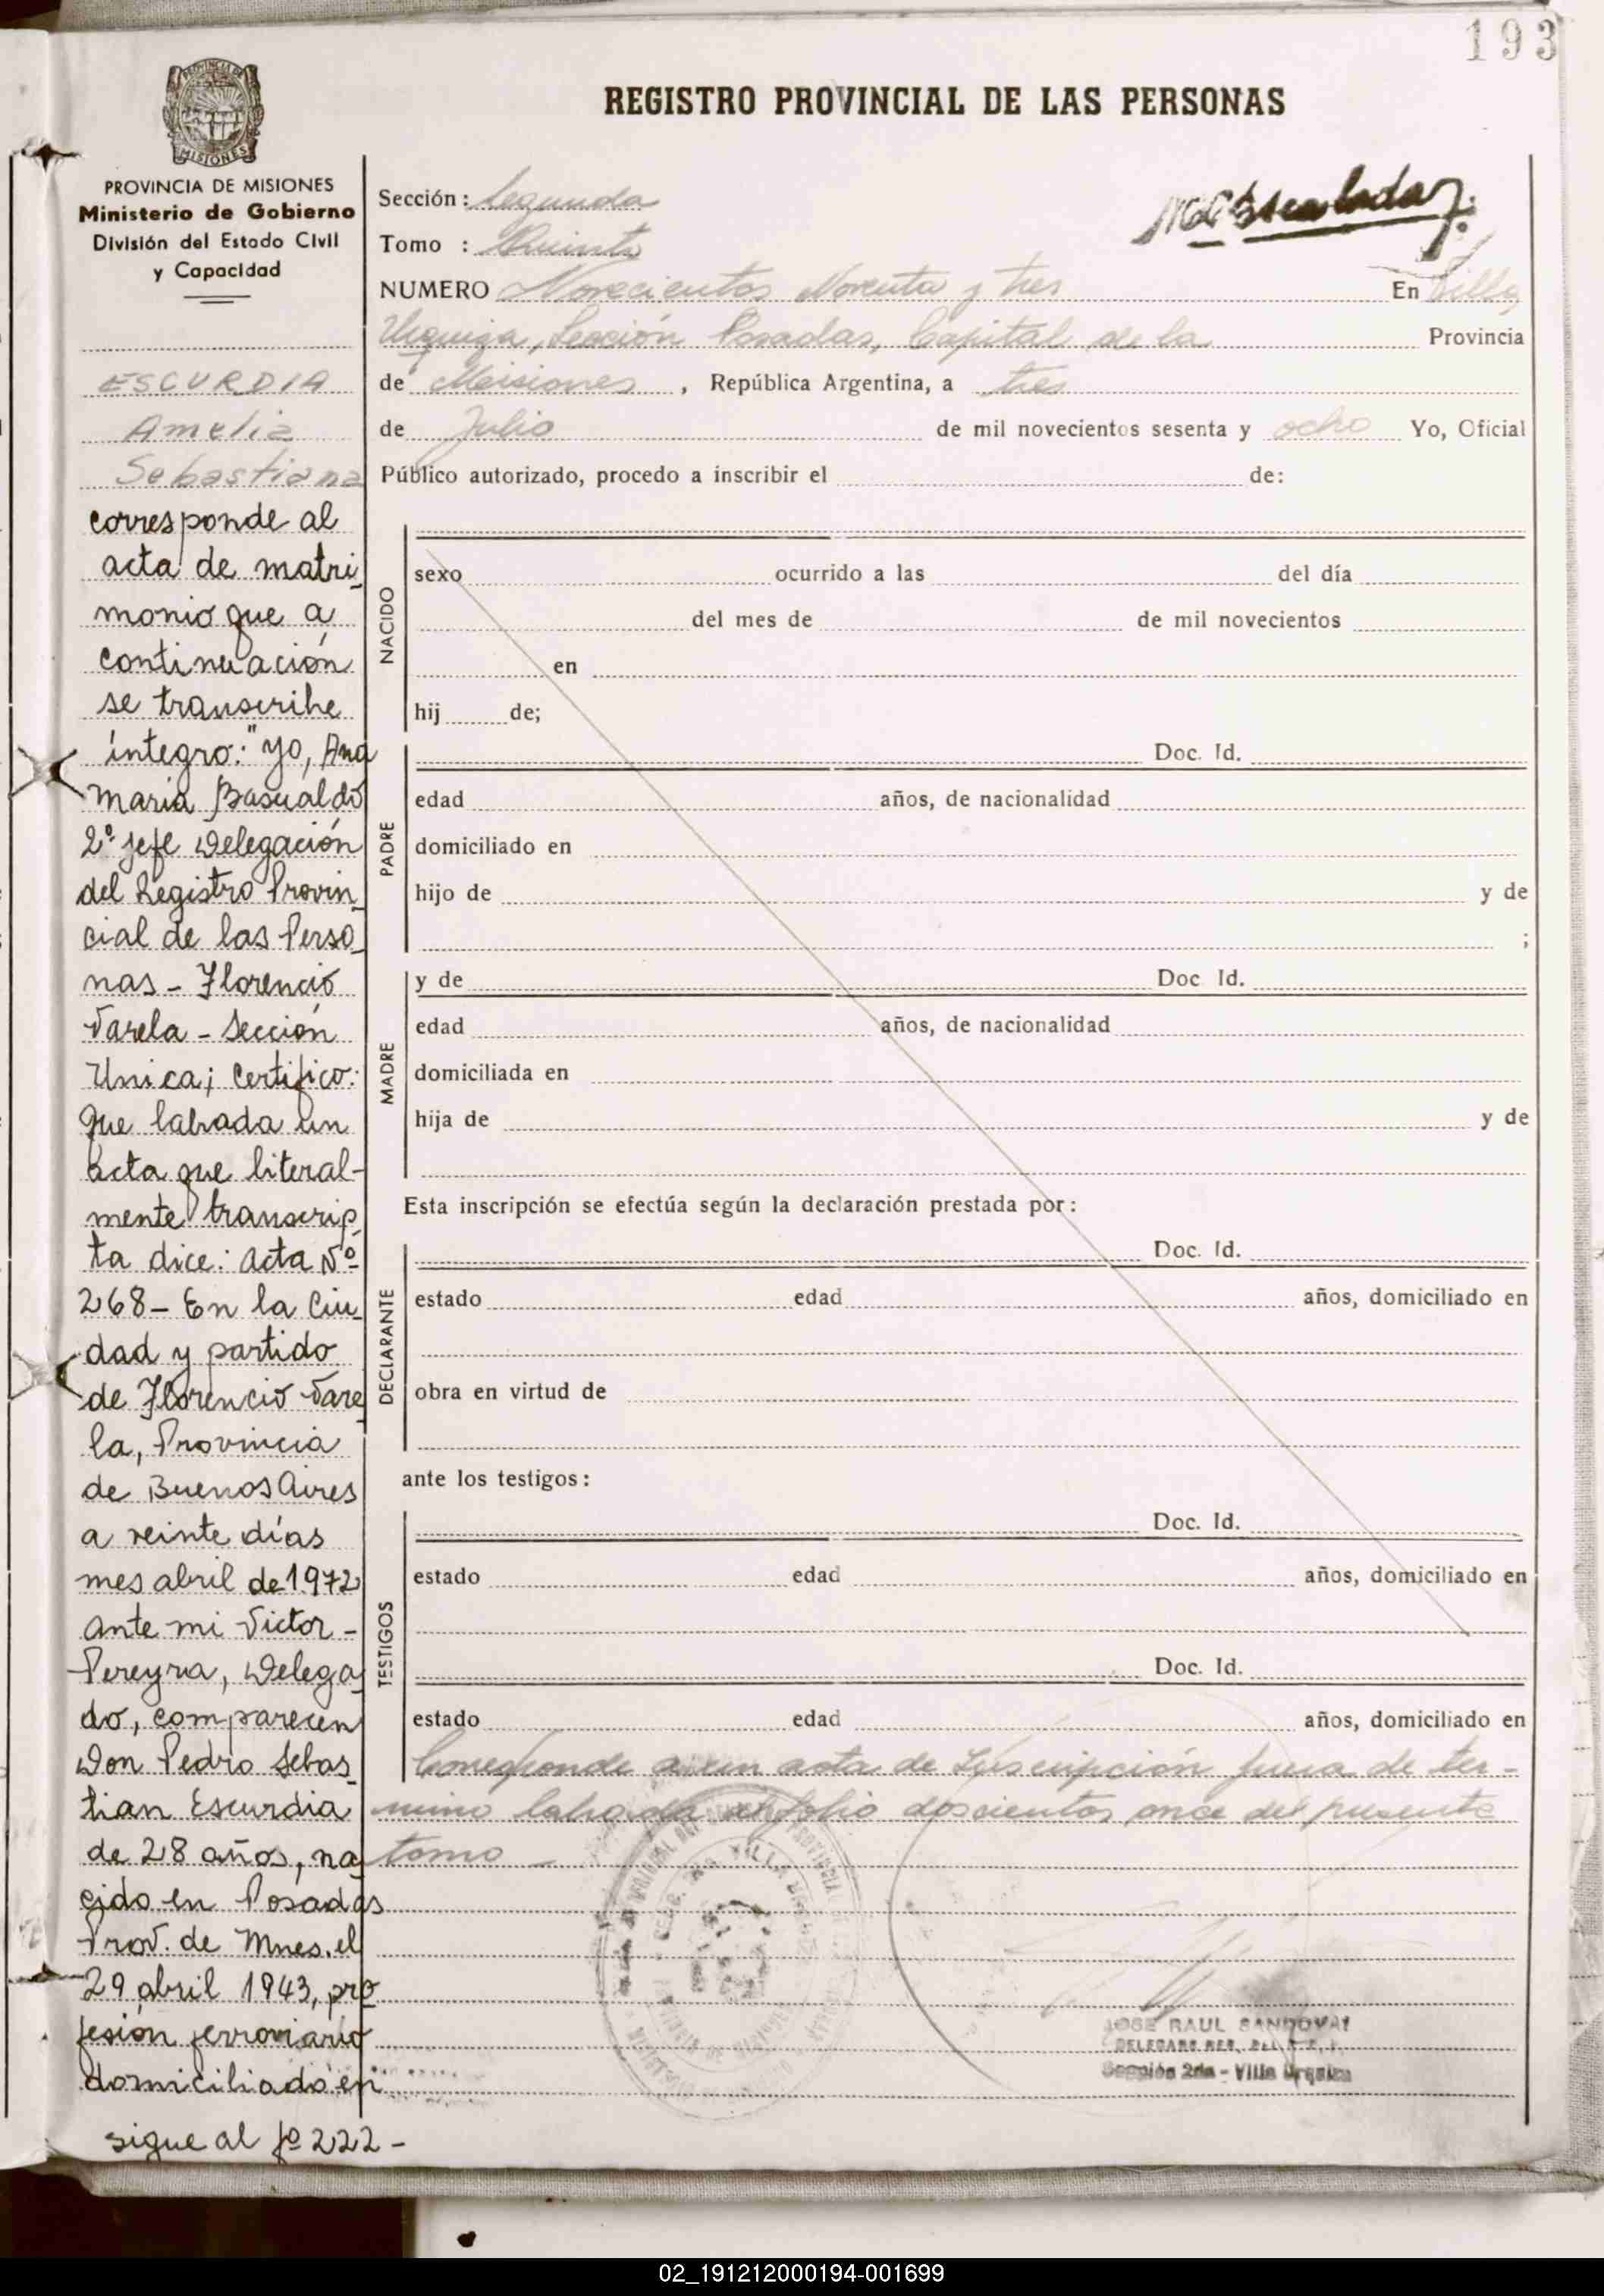 193
REGISTRO PROVINCIAL DE LAS PERSONAS
PROVINCIA DE MISIONES
Ministerio de Gobierno
División del Estado Civil
y Capacidad
ESCURDIA
Amelia
Sebastiana
corresponde al
acta de matri
monio que a
continuación
se transcribe
íntegro: "Yo, Ana
María Basualdo
2º jefe Delegación
del Registro Provin
cial de las Perso
nas - Florencio
Varela - Sección
Unica; Certifico:
Que labrada un
Acta que literal-
mente transcrip
ta dice: Acta Nº
268 - En la Ciu
dad y partido
de Florencio Vare
la, Provincia
de Buenos Aires
a veinte días
mes abril de 1972
ante mi Victor -
Pereyra, Delega
do, comparecen
Don Pedro Sebas
tian Escurdia
de 28 años, na
cido en Posadas
Prov. de Mnes. el
29 abril 1943, pro
fesión ferroviario
domiciliado en
sigue al fº 222 -
Sección: Segunda
Tomo : Quinto
NUMERO Novecientos Noventa y tres En Villa
Urquiza, Sección Posadas, Capital de la Provincia
de Misiones, República Argentina, a tres
de Julio de mil novecientos sesenta y ocho Yo, Oficial
Público autorizado, procedo a inscribir el de:
NACIDO
sexo ocurrido a las del día
del mes de de mil novecientos
en
hij de;
PADRE
Doc. Id.
edad años, de nacionalidad
domiciliado en
hijo de y de
;
MADRE
y de Doc Id.
edad años, de nacionalidad
domiciliada en
hija de y de
Esta inscripción se efectúa según la declaración prestada por:
DECLARANTE
Doc. Id.
estado edad años, domiciliado en
obra en virtud de
ante los testigos:
TESTIGOS
Doc. Id.
estado edad años, domiciliado en
Doc. Id.
estado edad años, domiciliado en
Corresponde a un acta de Inscripción fuera de ter-
mino labrada al folio doscientos once del presente
tomo -
JOSE RAUL SANDOVAL
Sección 2da - Villa Urquiza
02_191212000194-001699